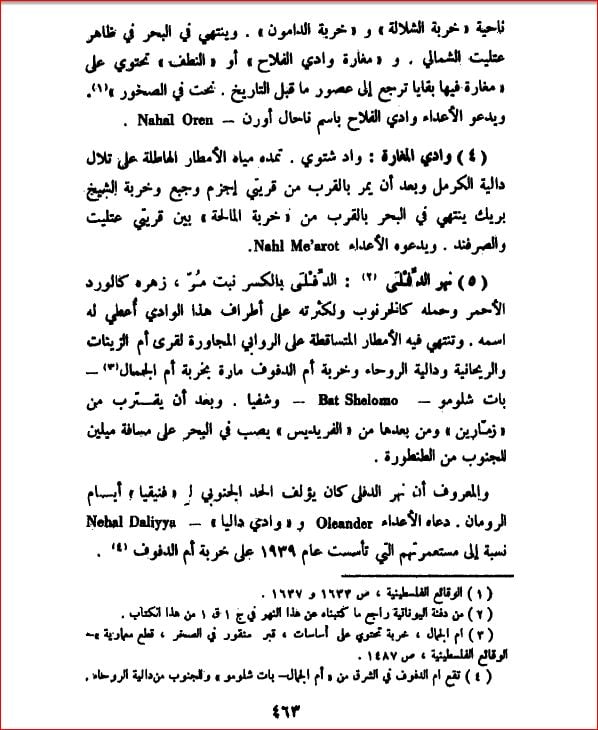 ناحية « خربة الشلالة » و « خربة الدامون » . وينتهي في البحر في ظاهر
عتليت الشمالي . و « مغارة وادي الفلاح » أو « النطف » تحتوي على
« مغارة فيها بقايا ترجع إلى عصور ما قبل التاريخ . نحت في الصخور »(١).
ويدعو الأعداء وادي الفلاح باسم ناحال أورن – Nahal Oren .
( ٤ ) وادي المغارة : واد شتوي . تمده مياه الأمطار الهاطلة على تلال
دالية الكرمل وبعد أن يمر بالقرب من قريتي إجزم وجبع وخربة الشيخ
بريك ينتهي في البحر بالقرب من « خربة المالحة » بين قريتي عتليت
والصرفند . ويدعوه الأعداء Nahl Me'arot.
( ٥ ) نهر الدِّفْلَى (٢) : الدِّفْلَى بالكسر نبت مُرّ ، زهره كالورد
الأحمر وحمله كالخرنوب ولكثرته على أطراف هذا الوادي أُعطي له
اسمه . وتنتهي فيه الأمطار المتساقطة على الروابي المجاورة لقرى أم الزينات
والريحانية ودالية الروحاء وخربة أم الدفوف مارة بخربة أم الجمال(٣) –
بات شلومو – Bat Shelomo – وشفيا . وبعد أن يقترب من
« زمّارين » ومن بعدها من « الفريديس » يصب في البحر على مسافة ميلين
للجنوب من الطنطورة .
والمعروف أن نهر الدفلى كان يؤلف الحد الجنوبي لـ « فنيقيا » أيام
الرومان . دعاه الأعداء Oleander و « وادي داليا » – Nehal Daliyya
نسبة إلى مستعمرتهم التي تأسست عام ١٩٣٩ على خربة أم الدفوف (٤) .
( ١ ) الوقائع الفلسطينية ، ص ١٦٣٣ و ١٦٣٧ .
( ٢ ) من دفنة اليونانية راجع ما كتبناه عن هذا النهر في ج ١ ق ١ من هذا الكتاب .
( ٣ ) ام الجمال ، خربة تحتوي على أساسات ، قبر منقور في الصخر ، قطع معمارية »–
الوقائع الفلسطينية ، ص ١٤٨٧ .
( ٤ ) تقع ام الدفوف في الشرق من « أم الجمال– بات شلومو » وللجنوب من دالية الروحاء .
٤٦٣